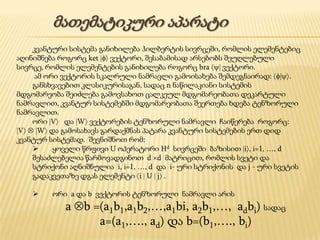 მათემატიკური აპარატი
კვანტური სისტემა განიხილება ჰილბერტის სივრცეში, რომლის ელემენტებიც
აღინიშნება როგორც ket |ϕ⟩ ვექტორი, შესაბამისად არსებობს შეუღლებული
სივრცე, რომლის ელემენტების განიხილება როგორც bra ⟨ψ| ვექტორი.
ამ ორი ვექტორის სკალრული ნამრავლი გამოისახება შემდეგნაირად: ⟨ϕ|ψ⟩.
განსხვავებით კლასიკურისაგან, სადაც n ნაწილაკიანი სისტემის
მდგომარეობა შეიძლება გამოვსახოთ ცალკეულ მდგომარეობათა დეკარტული
ნამრავლით, კვანტურ სისტემებში მდგომარეობათა შეერთება ხდება ტენზორული
ნამრავლით.
ორი |V⟩ და |W⟩ ვექტორების ტენზორული ნამრავლი ჩაიწერება როგორც:
|V⟩ ⊗ |W⟩ და გამოსახავს გარდაქმნას პატარა კვანტური სისტემების ერთ დიდ
კვანტურ სისტემად. შევნიშნოთ რომ:
➢ ყოველი წრფივი U ოპერატორი Hᵈ სივრცეში ბაზისით |i⟩, i=1, …, d
შესაძლებელია წარმოვადგინოთ d xd მატრიცით, რომლის სვეტი და
სტრიქონი აღნიშნულია i, i=1, …, d და i- ური სტრიქონის და j - ური სვეტის
გადაკვეთაზე დგას ელემენტი ⟨i | U | j⟩ .
➢ ორი a და b ვექტორის ტენზორული ნამრავლი არის
a ⊗b =(a₁b₁,a₁b₂,…,a₁bi, a₂b₁,…, a_db_l) სადაც
a=(a₁,…., a_d) და b=(b₁,…., b_l)